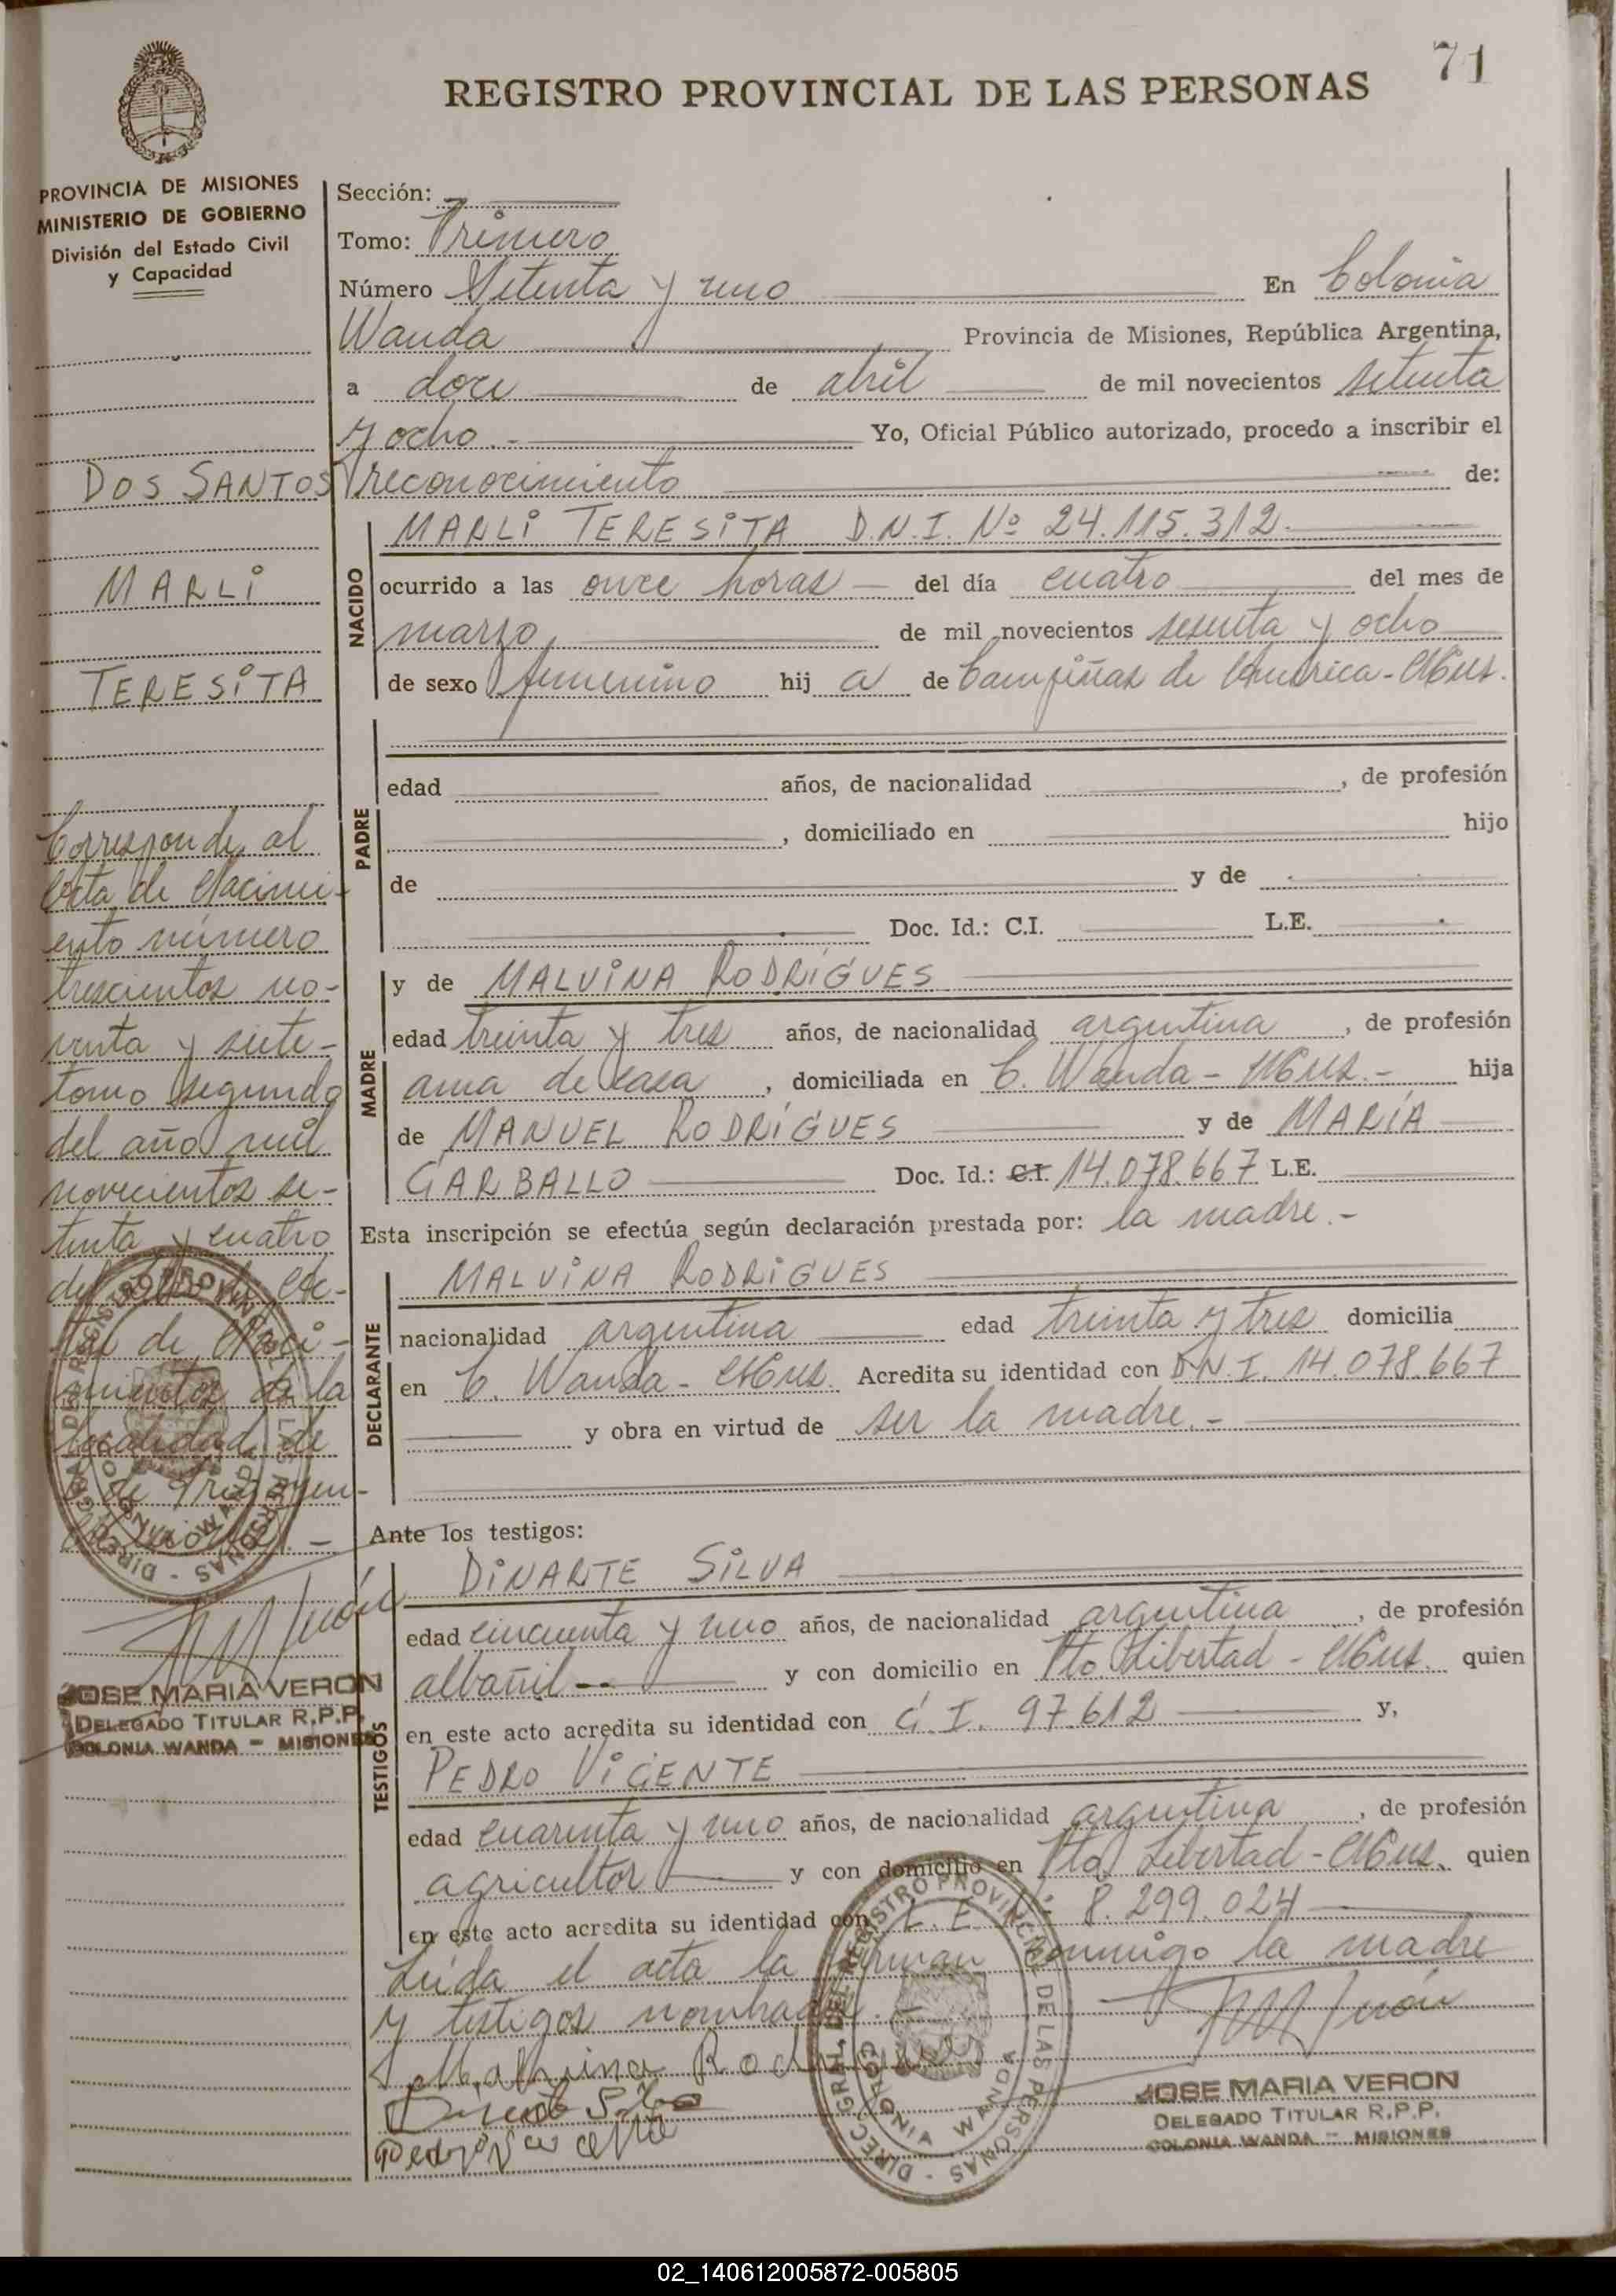 71
REGISTRO PROVINCIAL DE LAS PERSONAS
PROVINCIA DE MISIONES
MINISTERIO DE GOBIERNO
División del Estado Civil
y Capacidad
Sección:
Tomo: Primero
Número Setenta y uno En Colonia
Wanda Provincia de Misiones, República Argentina,
a doce de abril de mil novecientos setenta
y ocho.- Yo, Oficial Público autorizado, procedo a inscribir el
reconocimiento de:
DOS SANTOS
MARLI
TERESITA
NACIDO
MARLI TERESITA D.N.I. Nº 24.115.312.
ocurrido a las once horas del día cuatro del mes de
marzo de mil novecientos sesenta y ocho
de sexo femenino hij a de Campiñas de América - Mns.
PADRE
edad años, de nacionalidad , de profesión
, domiciliado en hijo
de y de
Doc. Id.: C.I. L.E.
MADRE
y de MALVINA RODRIGUES
edad treinta y tres años, de nacionalidad argentina , de profesión
ama de casa , domiciliada en C. Wanda - Mns.- hija
de MANUEL RODRIGUES y de MARÍA
CARBALLO Doc. Id.: C.I. 14.078.667 L.E.
Esta inscripción se efectúa según declaración prestada por: la madre.-
DECLARANTE
MALVINA RODRIGUES
nacionalidad argentina edad treinta y tres domicilia
en C. Wanda - Mns. Acredita su identidad con D.N.I. 14.078.667
y obra en virtud de ser la madre.-
Corresponde al
acta de Nacimi-
ento número
trescientos no-
venta y siete
tomo segundo
del año mil
novecientos se-
tenta y cuatro
de Naci-
mientos de la
localidad de
JOSE MARIA VERON
DELEGADO TITULAR R.P.P.
COLONIA WANDA - MISIONES
Ante los testigos:
TESTIGOS
DINARTE SILVA
edad cincuenta y uno años, de nacionalidad argentina , de profesión
albañil-- y con domicilio en Pto. Libertad - Mns. quien
en este acto acredita su identidad con C.I. 97.612 y,
PEDRO VICENTE
edad cuarenta y uno años, de nacionalidad argentina , de profesión
agricultor y con domicilio en Pto. Libertad - Mns. quien
en este acto acredita su identidad con L.E. Nº 8.299.024
Leída el acta la firman conmigo la madre
y testigos nombrados.-
Malvina Rodrigues
DIREC. GRAL. DEL REGISTRO PROVINCIAL DE LAS PERSONAS
COLONIA WANDA
JOSE MARIA VERON
DELEGADO TITULAR R.P.P.
COLONIA WANDA - MISIONES
02_140612005872-005805